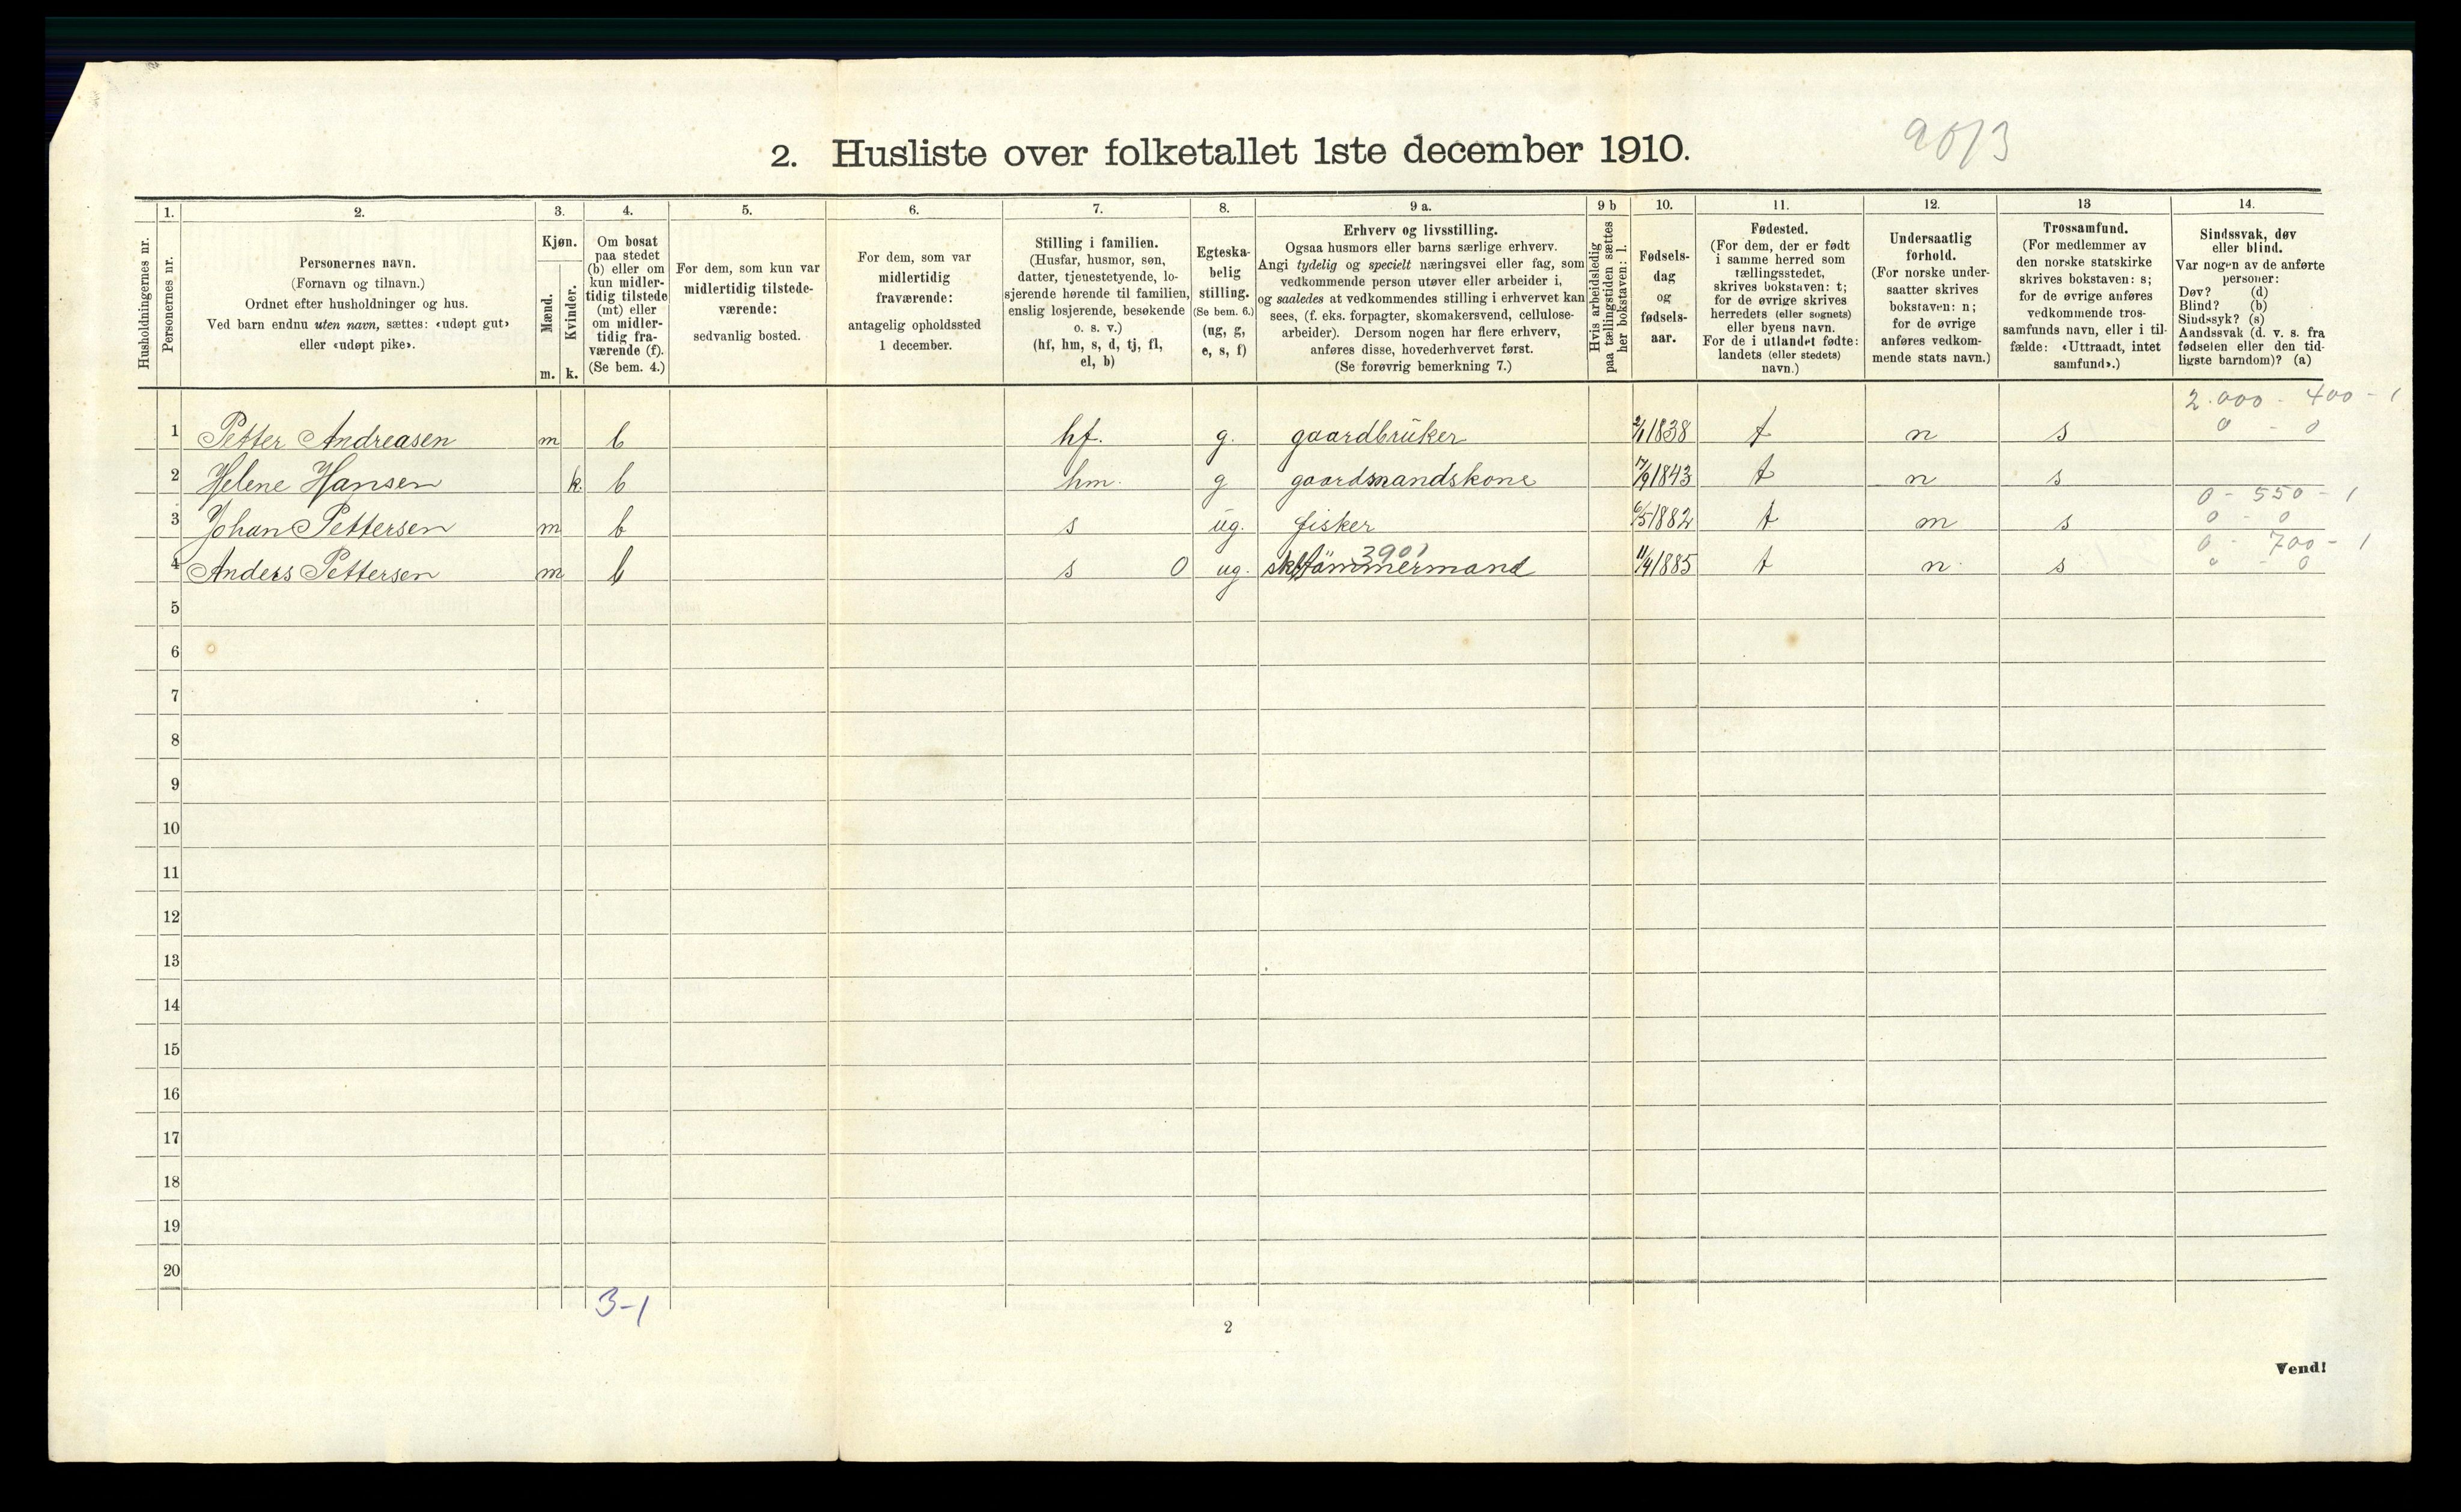 2. Husliste over folketallet 1ste december 1910.
1. 2. 3. 4. 5. 6. 7. 8. 9 a. 9 b 10. 11. 12. 13 14.
Husholdningernes nr.
Personernes nr.
Personernes navn.
(Fornavn og tilnavn.)
Ordnet efter husholdninger og hus.
Ved barn endnu uten navn, sættes: «udøpt gut»
eller «udøpt pike».
Kjøn.
Mænd.
Kvinder.
m. k.
Om bosat
paa stedet
(b) eller om
kun midler-
tidig tilstede
(mt) eller
om midler-
tidig fra-
værende (f).
(Se bem. 4.)
For dem, som kun var
midlertidig tilstede-
værende:
sedvanlig bosted.
For dem, som var
midlertidig
fraværende:
antagelig opholdssted
1 december.
Stilling i familien.
(Husfar, husmor, søn,
datter, tjenestetyende, lo-
sjerende hørende til familien,
enslig losjerende, besøkende
o. s. v.)
(hf, hm, s, d, tj, fl,
el, b)
Egteska-
belig
stilling.
(Se bem. 6.)
(ug, g,
e, s, f)
Erhverv og livsstilling.
Ogsaa husmors eller barns særlige erhverv.
Angi tydelig og specielt næringsvei eller fag, som
vedkommende person utøver eller arbeider i,
og saaledes at vedkommendes stilling i erhvervet kan
sees, (f. eks. forpagter, skomakersvend, cellulose-
arbeider). Dersom nogen har flere erhverv,
anføres disse, hovederhvervet først.
(Se forøvrig bemerkning 7.)
Hvis arbeidsledig
paa tællingstiden sættes
her bokstaven: l.
Fødsels-
dag
og
fødsels-
aar.
Fødested.
(For dem, der er født
i samme herred som
tællingsstedet,
skrives bokstaven: t;
for de øvrige skrives
herredets (eller sognets)
eller byens navn.
For de i utlandet fødte:
landets (eller stedets)
navn.)
Undersaatlig
forhold.
(For norske under-
saatter skrives
bokstaven: n;
for de øvrige
anføres vedkom-
mende stats navn.)
Trossamfund.
(For medlemmer av
den norske statskirke
skrives bokstaven: s;
for de øvrige anføres
vedkommende tros-
samfunds navn, eller i til-
fælde: «Uttraadt, intet
samfund».)
Sindssvak, døv
eller blind.
Var nogen av de anførte
personer:
Døv? (d)
Blind? (b)
Sindssyk? (s)
Aandssvak (d. v. s. fra
fødselen eller den tid-
ligste barndom)? (a)
2.000 - 400 - 1
1 Petter Andreasen m b hf. g. gaardbrüker 2/1 1838 t n s 0 - 0
2 Helene Hansen k. b hm. g gaardmandskone 17/9 1843 t n s
0 - 550 - 1
3 Johan Pettersen m b s üg. fisker 6/5 1882 t n s 0 - 0
3901 0 - 700 - 1
4 Anders Pettersen m b s 0 ug. tömmermand 11/4 1885 t n s 0 - 0
5
6
7
8
9
10
11
12
13
14
15
16
17
18
19
20
3-1
2
Vend!